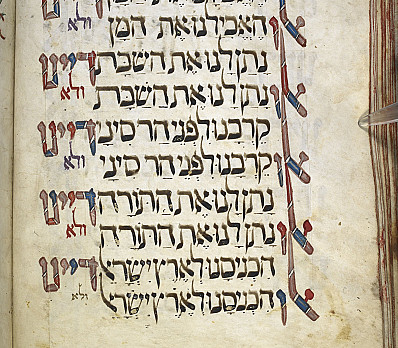 האכילנו את המן ולא
נתן לנו את השבת דיינו
נתן לנו את השבת ולא
קרבנו לפני הר סיני דיינו
קרבנו לפני הר סיני ולא
נתן לנו את התורה דיינו
נתן לנו את התורה ולא
הכניסנו לארץ ישראל דיינו
הכניסנו לארץ ישראל ולא